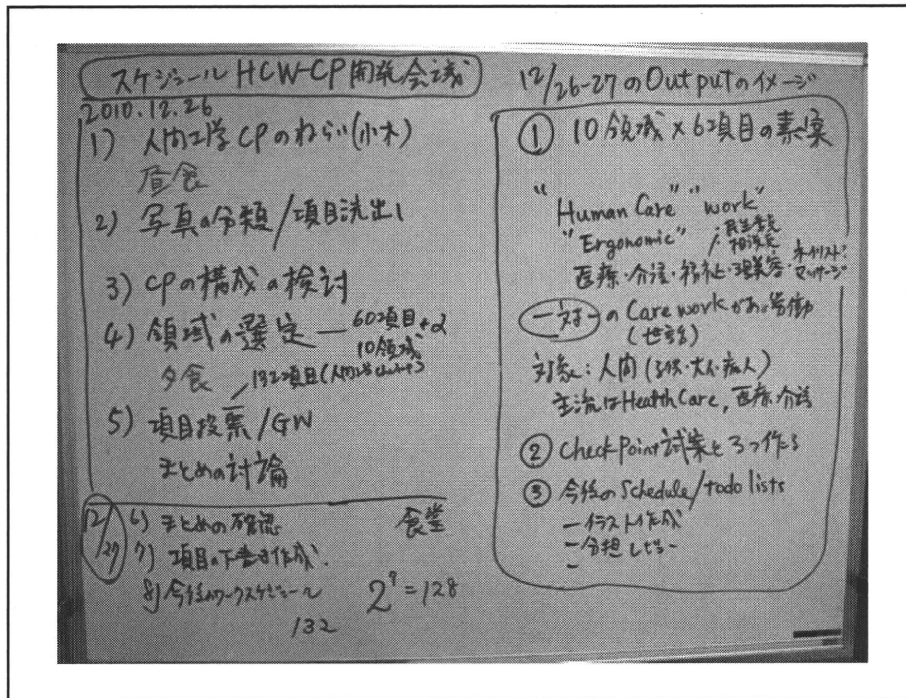 スケジュール HCW-CP 開発会議
2010.12.26
1) 人間工学CPのねらい(小木)
昼食
2) 写真の分類/項目洗出し
3) CPの構成の検討
4) 領域の選定 — 60項目+α
10領域
夕食 132項目(人間工学
5) 項目投票/GW
まとめの討論
12/27 6) まとめの確認 食堂
7) 項目の下書き作成.
8) 今後のワークスケジュール 2⁷=128
132
12/26-27のOutputのイメージ
① 10領域×6項目の素案
"Human Care" "work"
"Ergonomic"
民生委員
相談員
医療・介護・福祉・理美容・ネイリスト・
マッサージ
一対一のCare workがある労働
(世話)
対象:人間(子供・大人・病人)
主流はHealth Care, 医療・介護
② CheckPoint試案を3つ作る
③ 今後のSchedule/todo lists
— イラスト作成